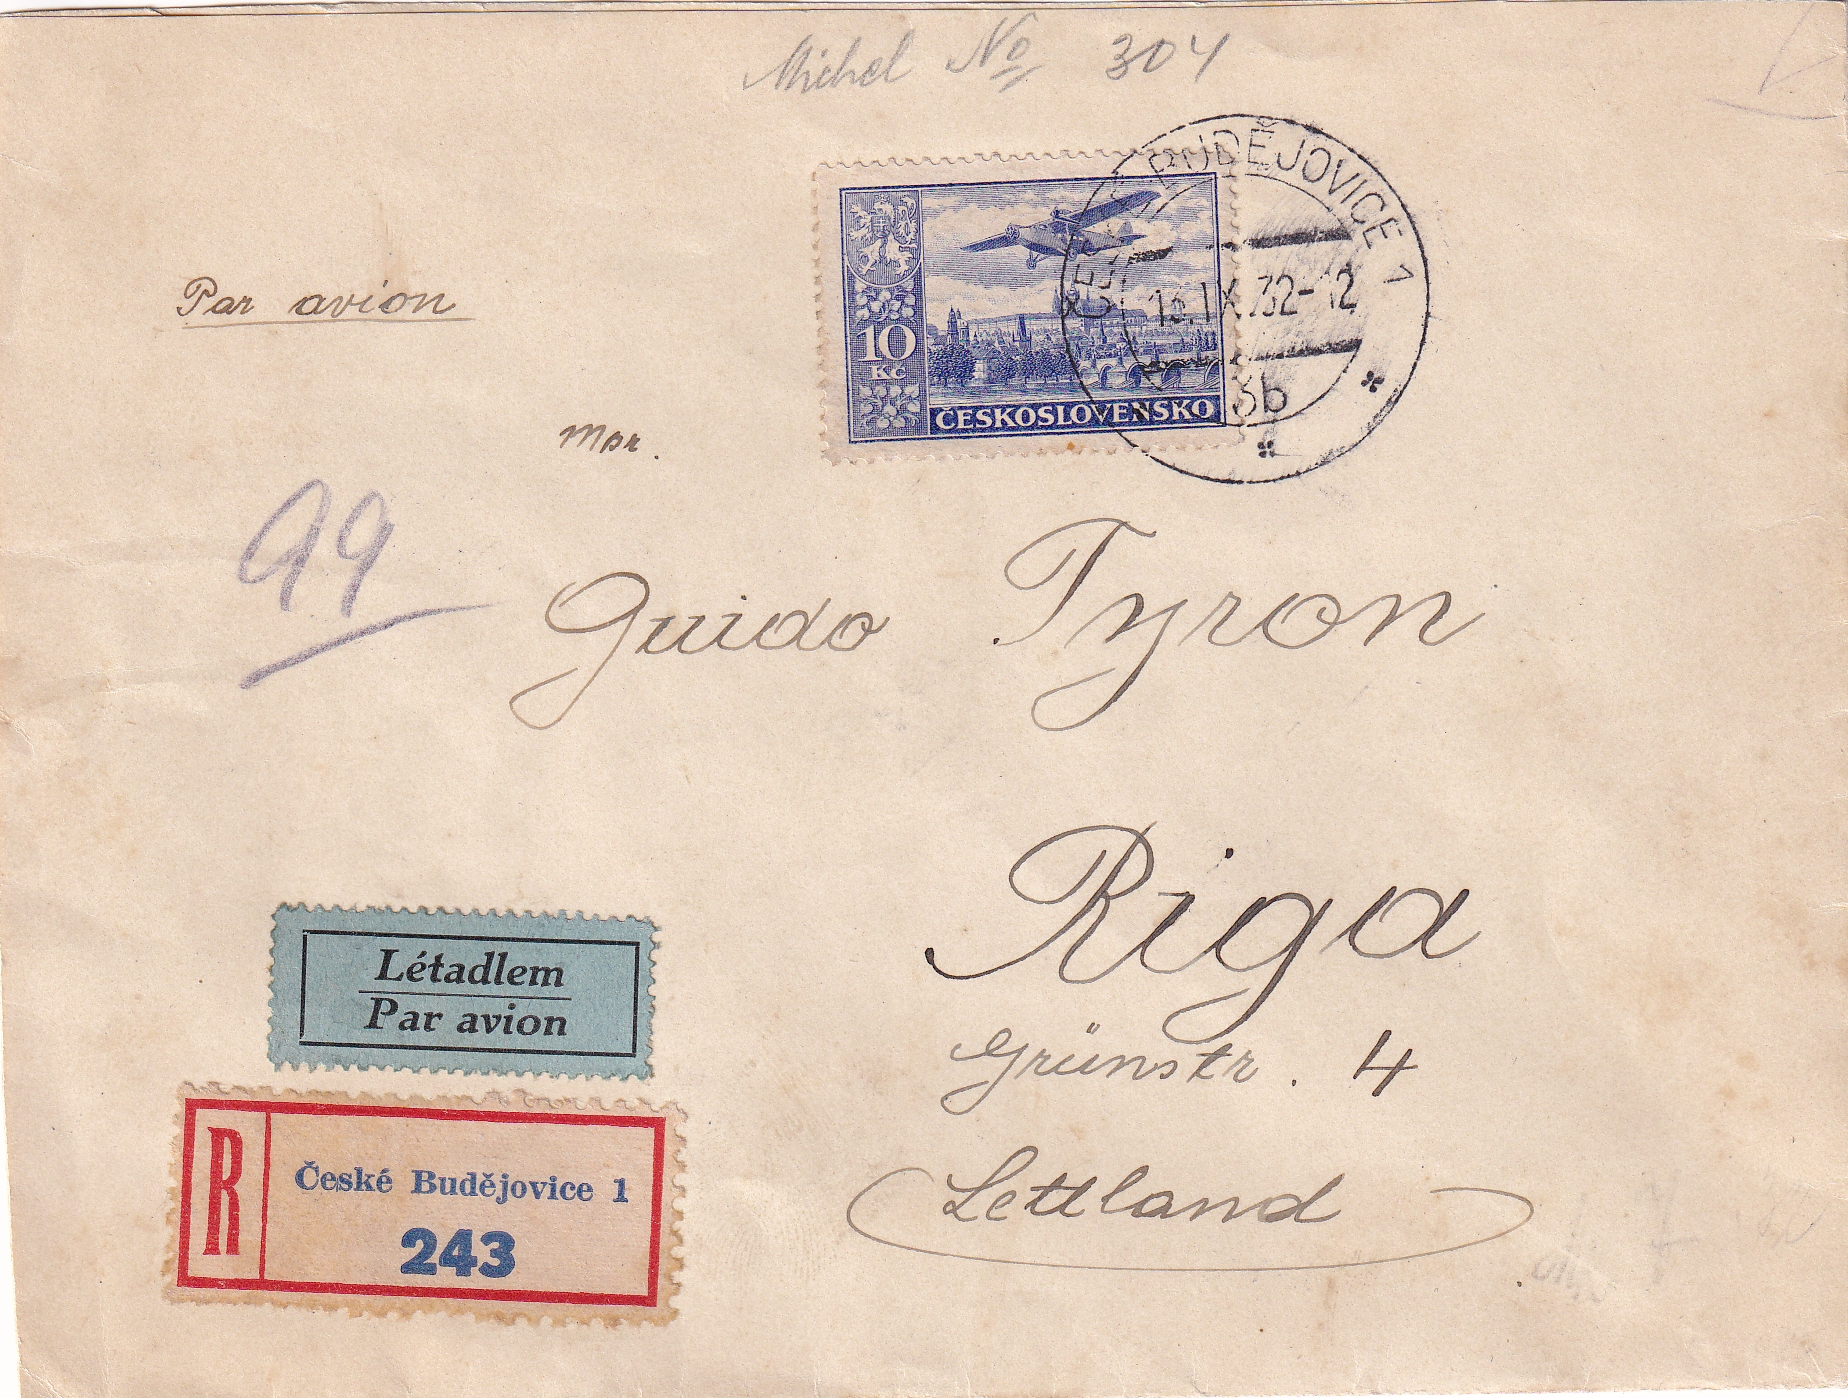 Michel No 304
ČESKÉ BUDĚJOVICE 1
.IX.32-12
3b
10
Kč
ČESKOSLOVENSKO
Par avion
99
Guido Tyron
Riga
Grünstr. 4
Lettland
Létadlem
Par avion
R
České Budějovice 1
243